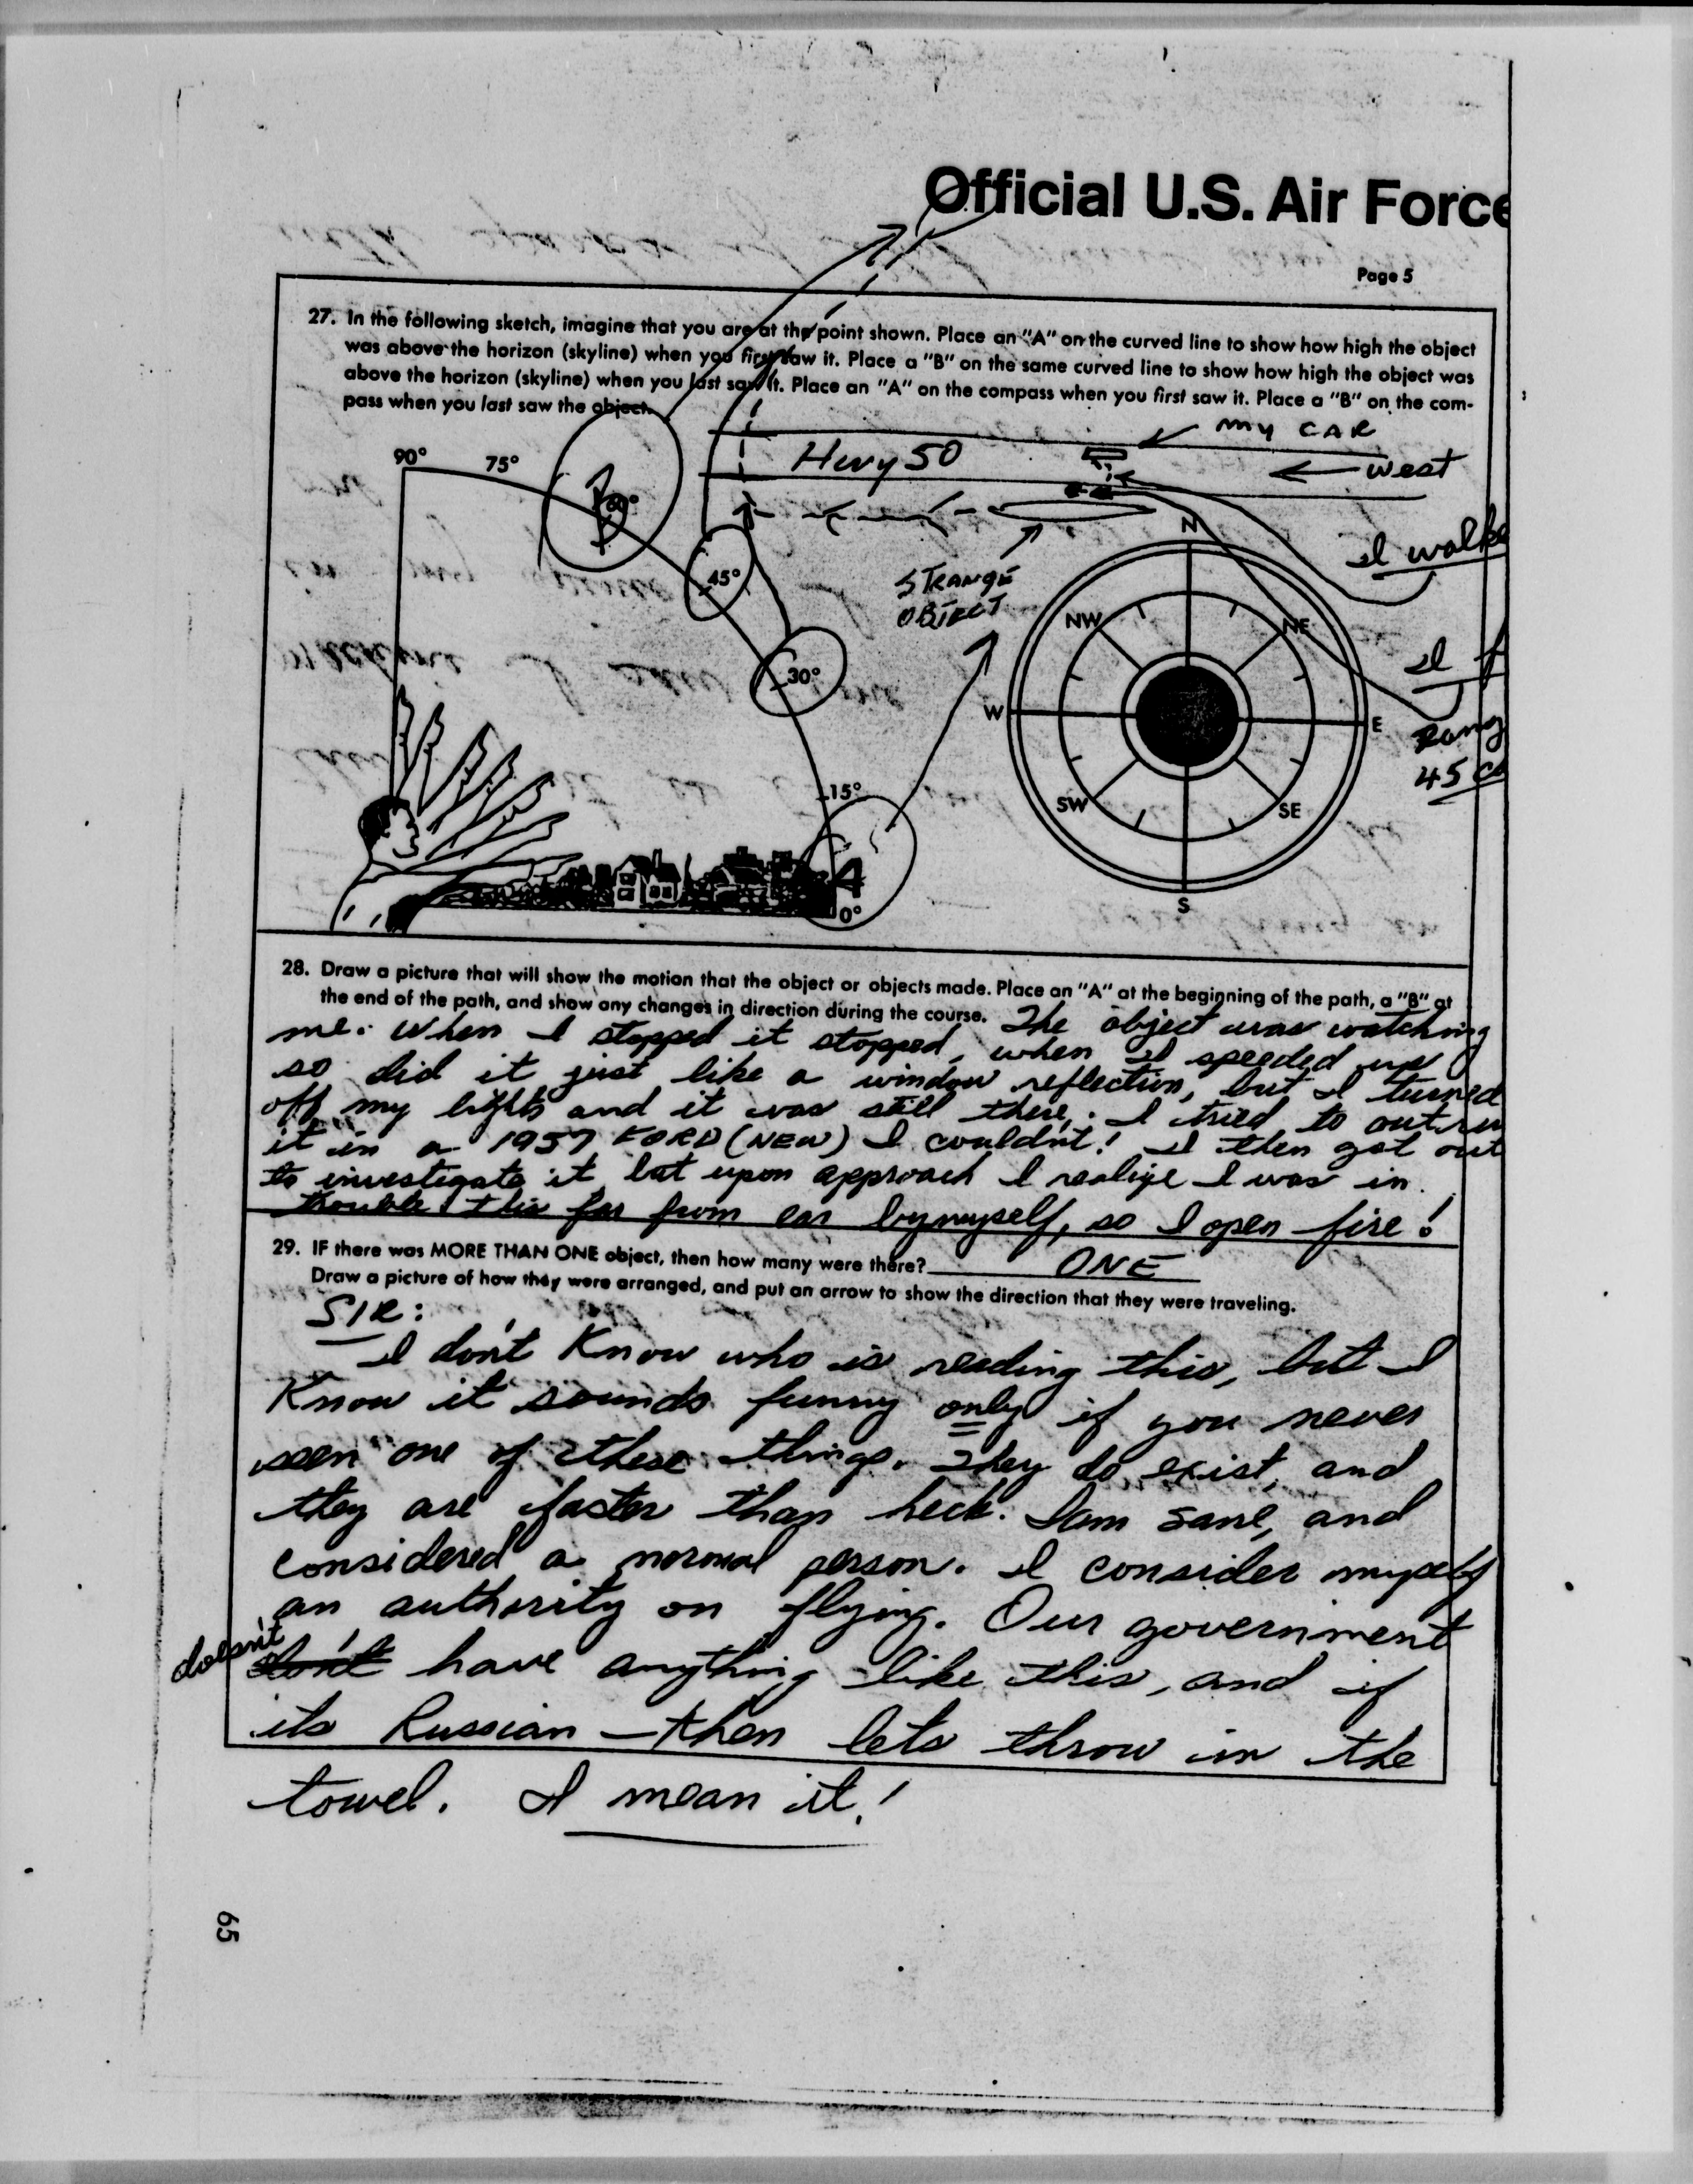 Official U.S. Air Force
Page 5
27. In the following sketch, imagine that you are at the point shown. Place an "A" on the curved line to show how high the object
was above the horizon (skyline) when you first saw it. Place a "B" on the same curved line to show how high the object was
above the horizon (skyline) when you last saw it. Place an "A" on the compass when you first saw it. Place a "B" on the com-
pass when you last saw the object.
MY CAR
Hwy 50
West
90°
75°
45°
30°
15°
A
0°
STRANGE
OBJECT
I walke
I f
Rang
45 ca
N
NW
NE
W
E
SW
SE
S
28. Draw a picture that will show the motion that the object or objects made. Place an "A" at the beginning of the path, a "B" at
the end of the path, and show any changes in direction during the course. The object was watching
me. When I stopped it stopped, when I speeded up
so did it just like a window reflection, but I turned
off my lights and it was still there. I tried to outru
it in a 1957 FORD (NEW) I couldn't! I then got out
to investigate it but upon approach I realize I was in
trouble this far from car bymyself, so I open fire!
29. IF there was MORE THAN ONE object, then how many were there? ONE
Draw a picture of how they were arranged, and put an arrow to show the direction that they were traveling.
SIR:
I don't Know who is reading this, but I
Know it sounds funny only if you never
seen one of these things. They do exist, and
they are faster than heck. I am sane, and
considered a normal person. I consider myself
an authority on flying. Our government
doesn't don't have anything like this, and if
its Russian — then lets throw in the
towel. I mean it!
65